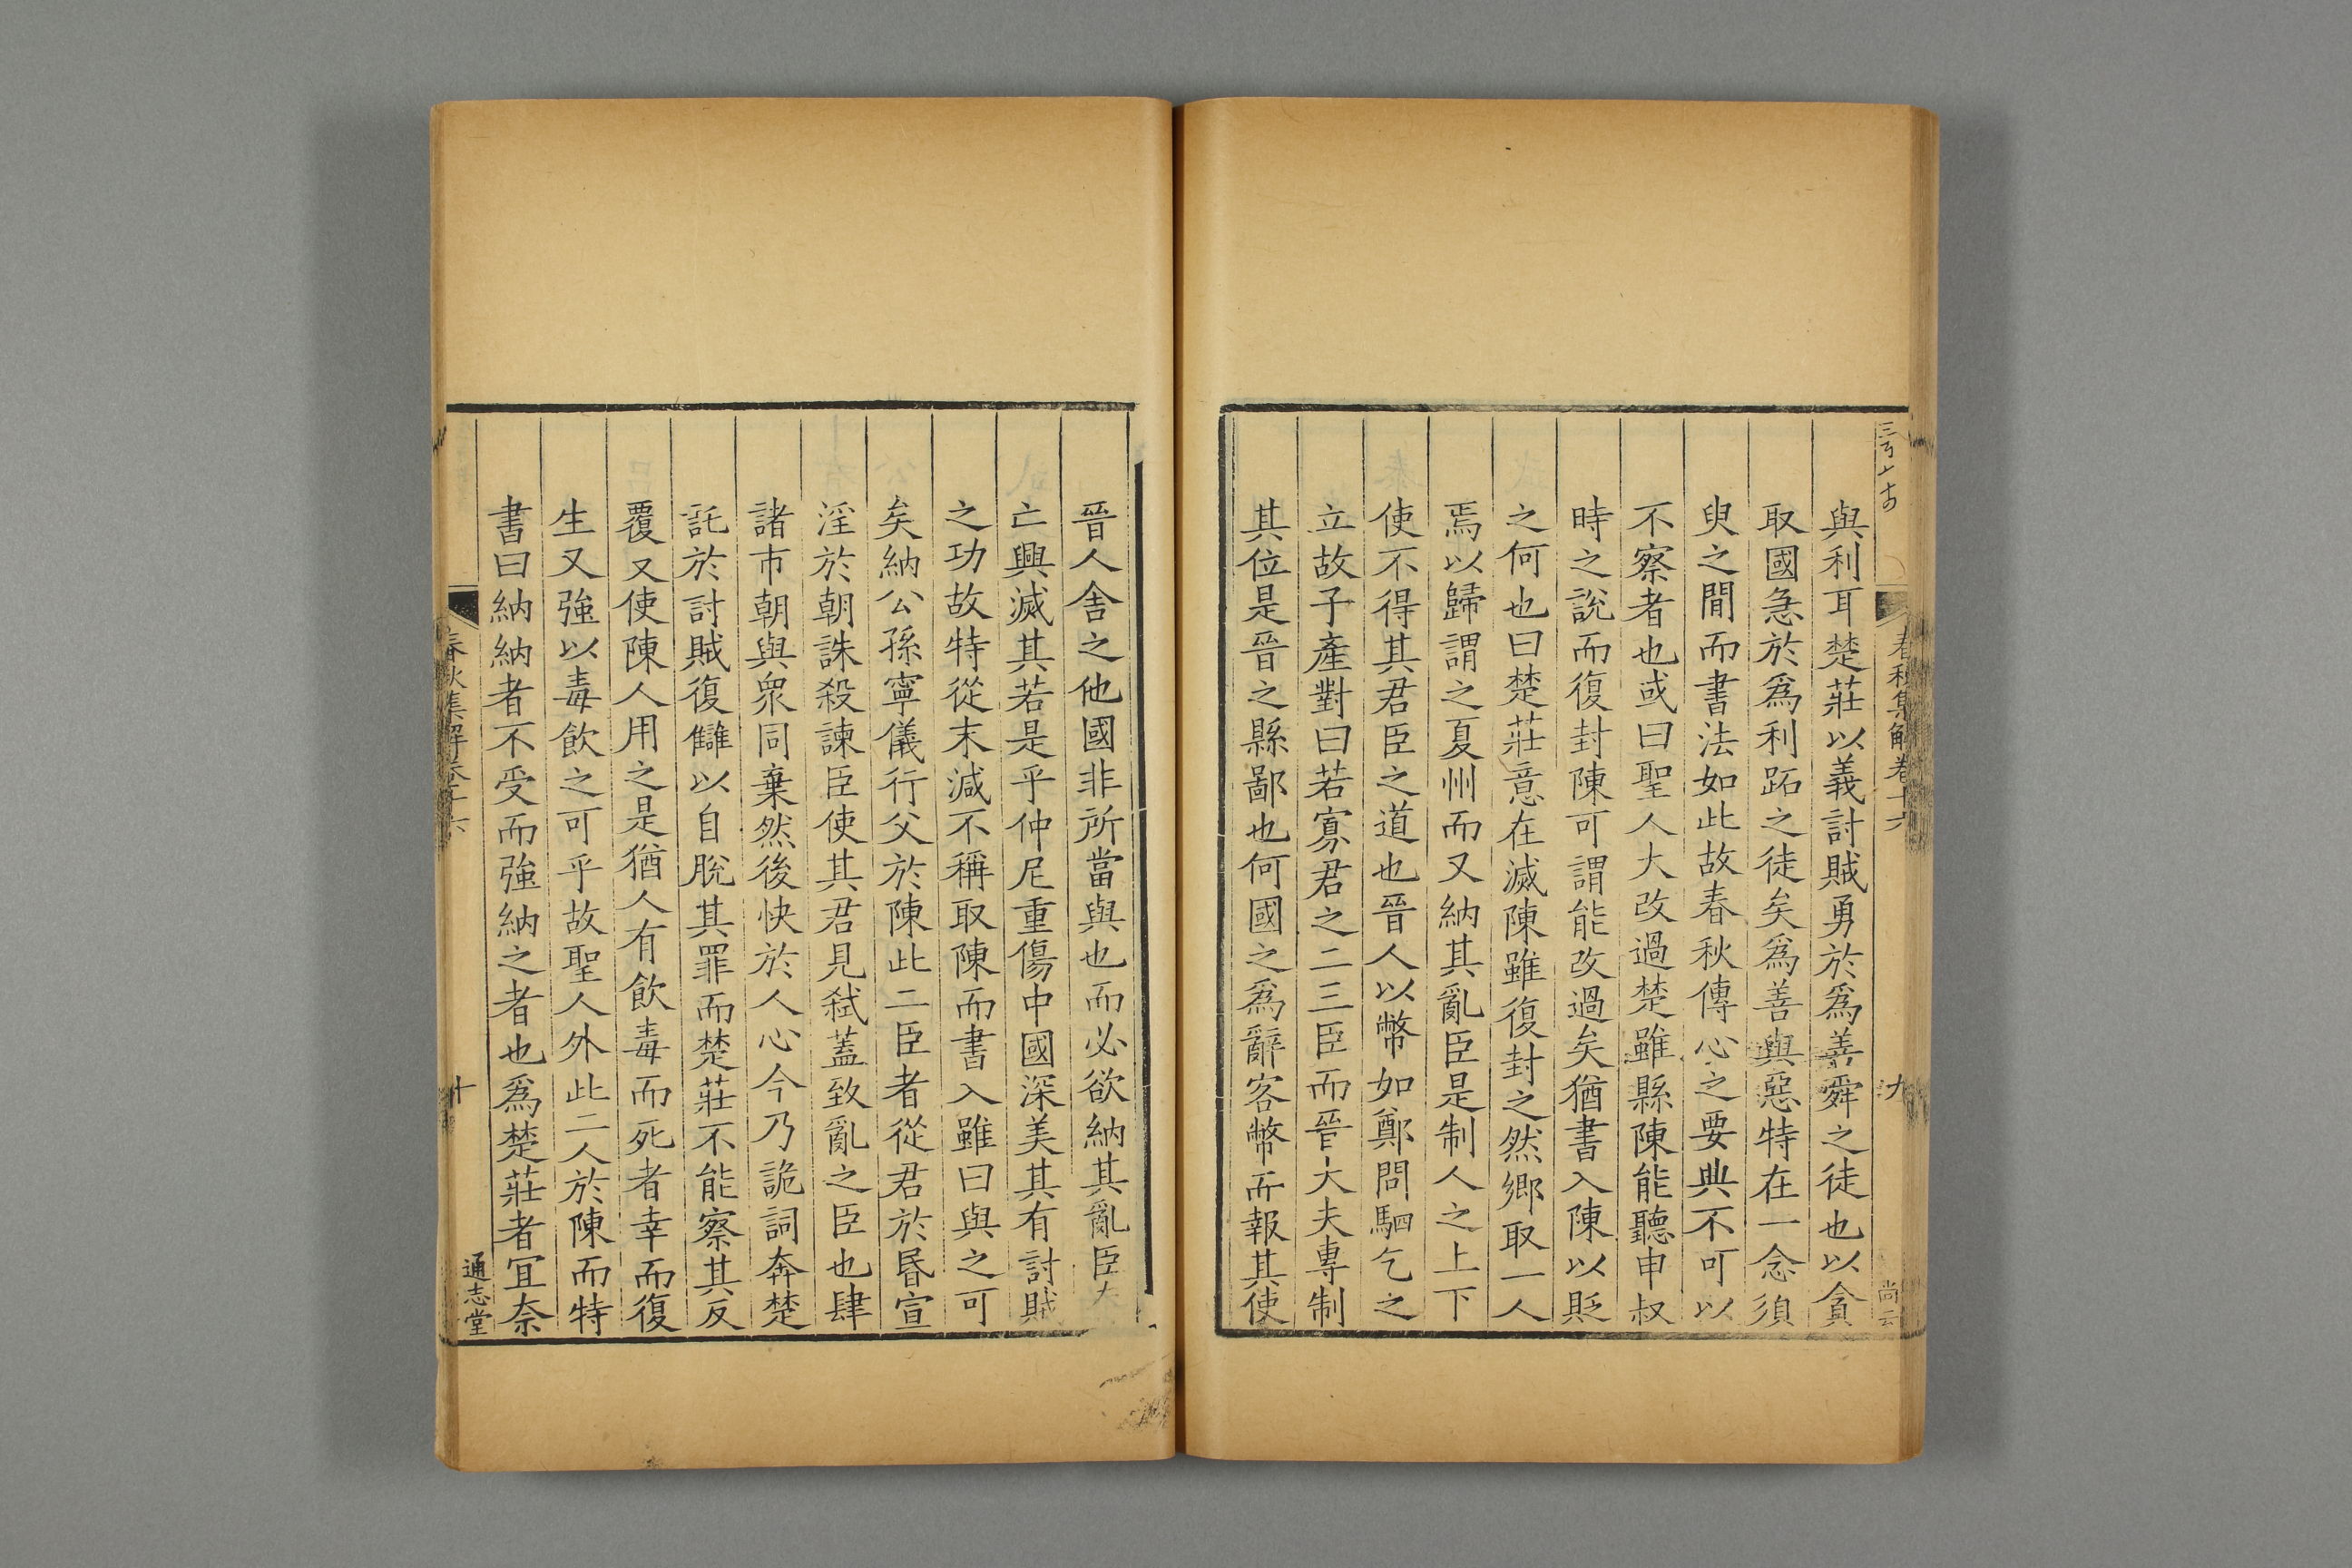 春秋集解卷十六
九
與利耳楚莊以義討賊勇於爲善舜之徒也以貪
取國急於爲利跖之徒矣爲善與惡特在一念須
臾之間而書法如此故春秋傳心之要典不可以
不察者也或曰聖人大改過楚雖縣陳能聽申叔
時之說而復封陳可謂能改過矣猶書入陳以貶
之何也曰楚莊意在滅陳雖復封之然鄉取一人
焉以歸謂之夏州而又納其亂臣是制人之上下
使不得其君臣之道也晉人以幣如鄭問駟乞之
立故子產對曰若寡君之二三臣而晉大夫專制
其位是晉之縣鄙也何國之爲辭客幣而報其使
晉人舍之他國非所當與也而必欲納其亂臣
亡興滅其若是乎仲尼重傷中國深美其有討賊
之功故特從末減不稱取陳而書入雖曰與之可
矣納公孫寧儀行父於陳此二臣者從君於昏宣
淫於朝誅殺諫臣使其君見弒蓋致亂之臣也肆
諸市朝與眾同棄然後快於人心今乃詭詞奔楚
託於討賊復讎以自脫其罪而楚莊不能察其反
覆又使陳人用之是猶人有飲毒而死者幸而復
生又強以毒飲之可乎故聖人外此二人於陳而特
書曰納納者不受而強納之者也爲楚莊者宜奈
春秋集解卷十六
十
通志堂